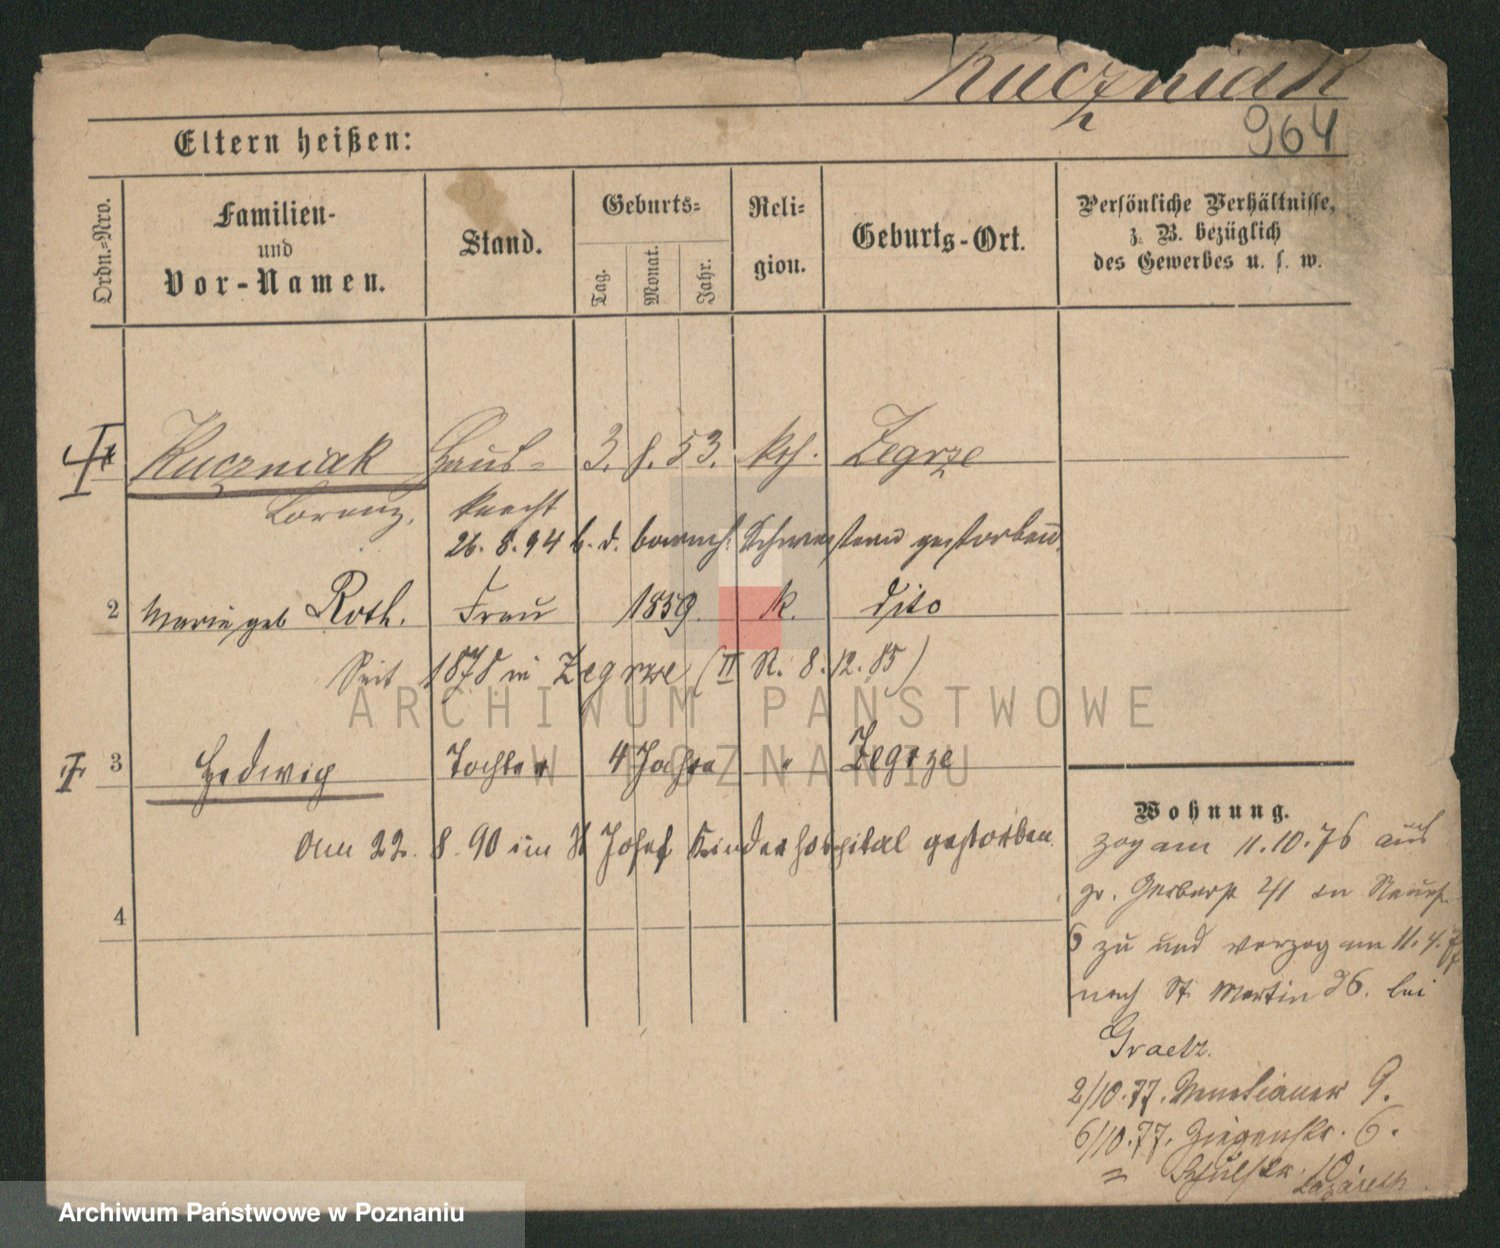 Kuczniak
964
Eltern heißen:
Ordn.-Nro.
Familien-
und
Vor-Namen.
Stand.
Geburts-
Tag.
Monat.
Jahr.
Reli-
gion.
Geburts-Ort.
Persönliche Verhältnisse,
z. B. bezüglich
des Gewerbes u. s. w.
Kuczniak Haus- 3. 8. 53. kth. Zegrze
Lorenz. knecht
26. 8. 94 b. d. barmh. Schwestern gestorben.
2 Marie geb Roth. Frau 1859. k. dito
Seit 1878 in Zegrze (II R. 8.12.85)
3 Hedwig Tochter 4 Jahre " Zegrze
am 22. 8. 90 im St Josef Kinderhospital gestorben.
4
Wohnung.
zog am 11.10.76 aus
gr. Gerberst 41 in Neuest.
6 zu und verzog am 11.4.77
nach St. Martin 26. bei
Graetz.
2/10.77. Venetianer 9.
6/10.77. Ziegenstr. 6.
" Schulstr. 10 Lazareth
ARCHIWUM PAŃSTWOWE
W POZNANIU
Archiwum Państwowe w Poznaniu